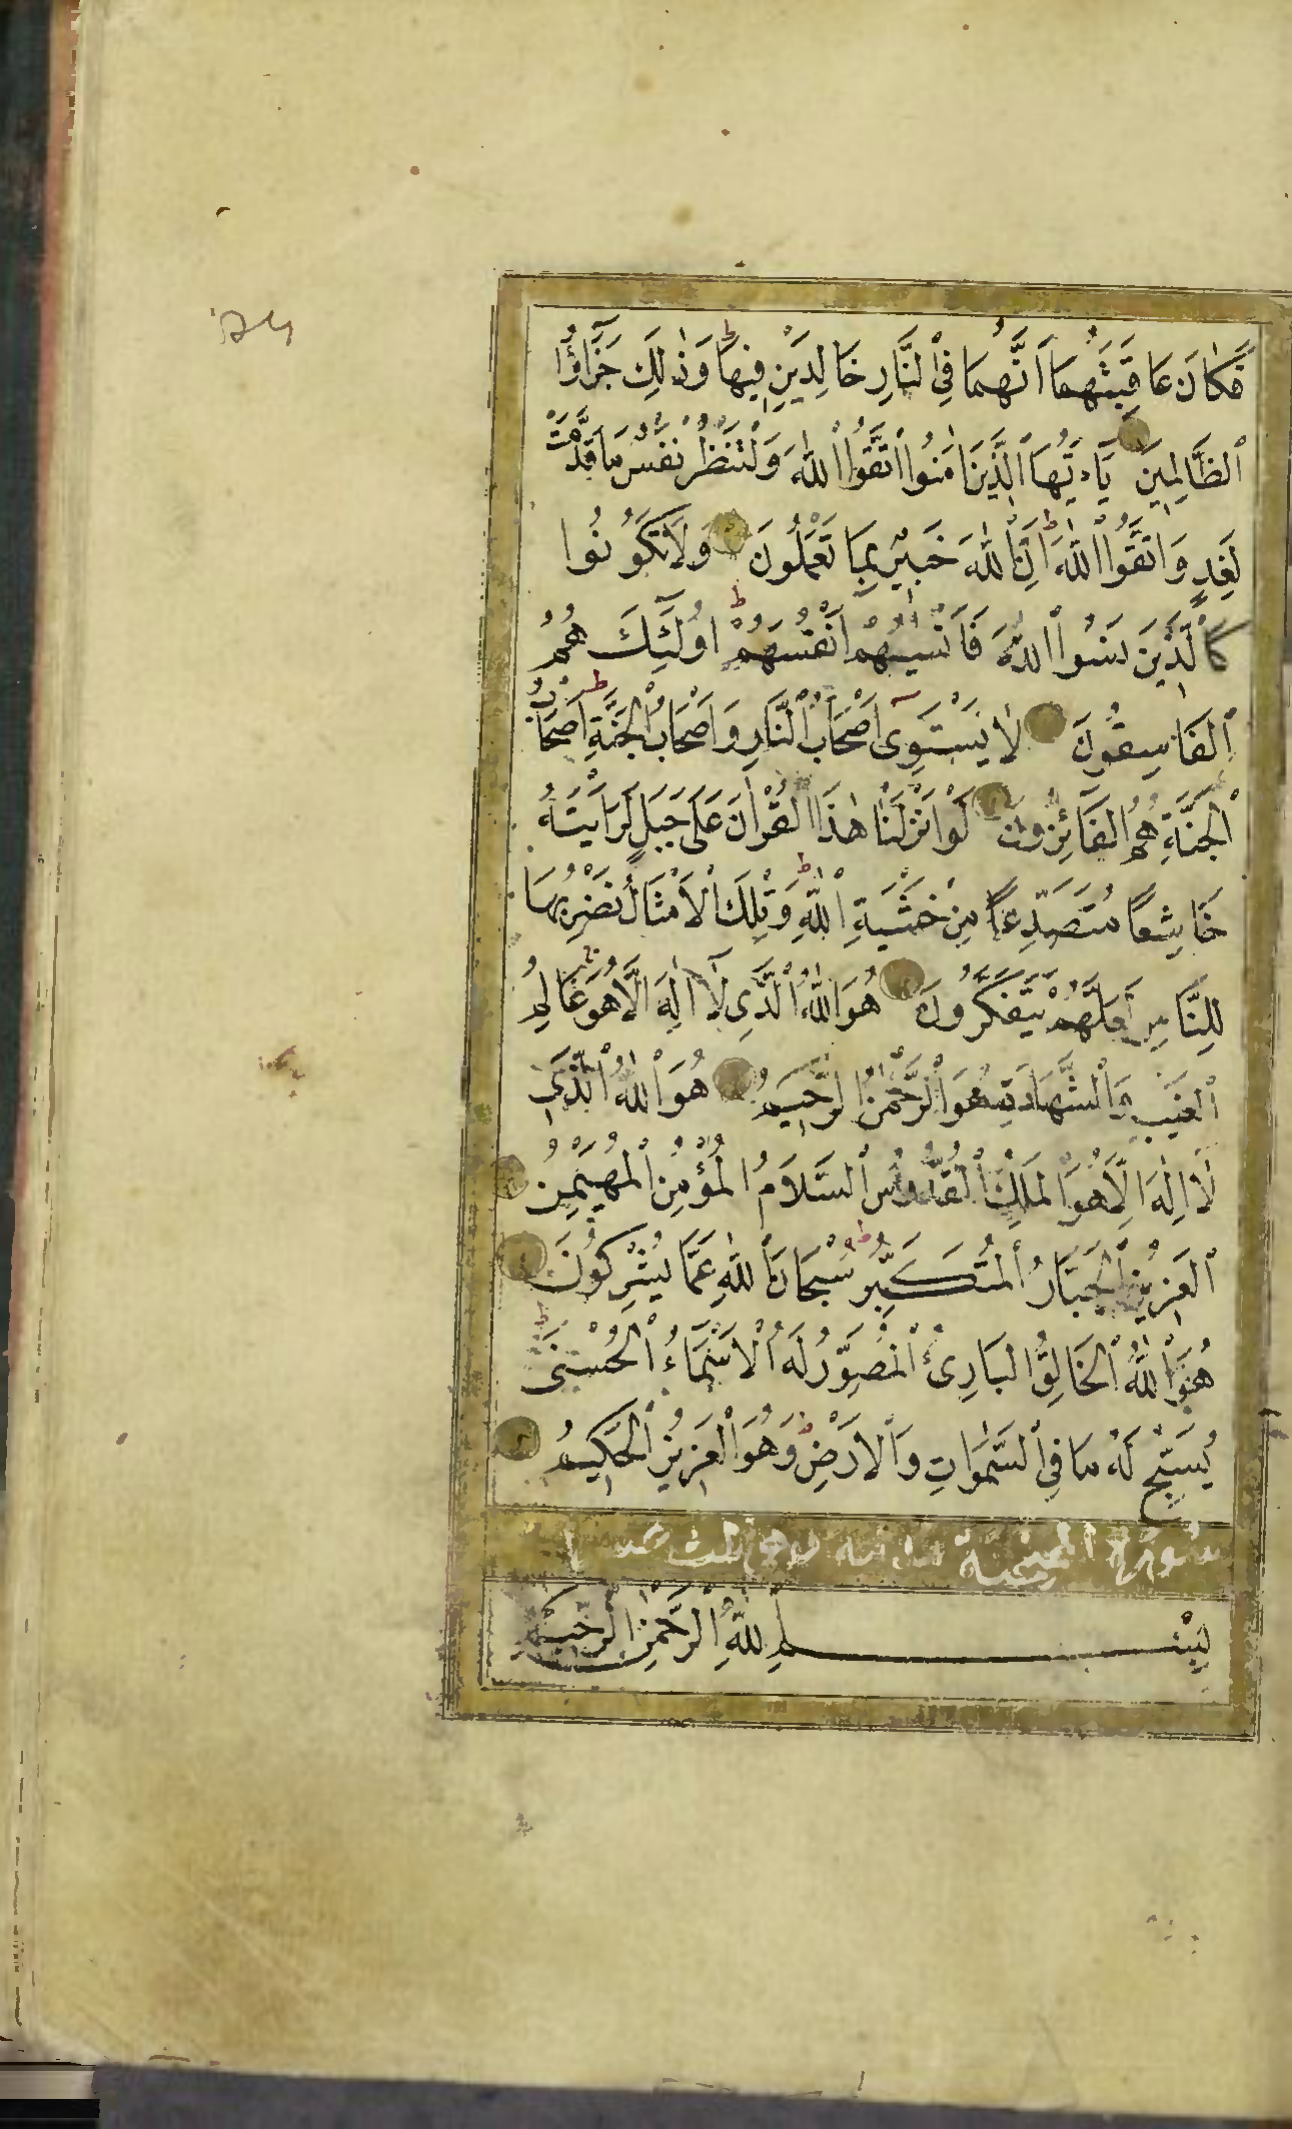 فَكَانَ عَاقِبَتَهُمَا أَنَّهُمَا فِي ٱلنَّارِ خَالِدَيْنِ فِيهَا ط وَذٰلِكَ جَزَآؤُا
ٱلظَّالِمِينَ يَاءَيُّهَا ٱلَّذِينَ اٰمَنُوا ٱتَّقُوا ٱللّٰهَ وَلْتَنْظُرْ نَفْسٌ مَا قَدَّمَتْ
لِغَدٍ وَاتَّقُوا ٱللّٰهَ ط اِنَّ ٱللّٰهَ خَبِيرٌ بِمَا تَعْمَلُونَ وَلَا تَكُونُوا
كَٱلَّذِينَ نَسُوا ٱللّٰهَ فَاَنْسٰيهُمْ اَنْفُسَهُمْ ط اُولٰٓئِكَ هُمُ
ٱلفَاسِقُونَ لَا يَسْتَوِىٓ اَصْحَابُ ٱلنَّارِ وَاَصْحَابُ ٱلْجَنَّةِ ط اَصْحَابُ
ٱلْجَنَّةِ هُمُ ٱلفَائِزُونَ لَوْ اَنْزَلْنَا هٰذَا ٱلْقُرْاٰنَ عَلَى جَبَلٍ لَرَاَيْتَهُ
خَاشِعًا مُتَصَدِّعًا مِنْ خَشْيَةِ ٱللّٰهِ ط وَتِلْكَ ٱلْاَمْثَالُ نَضْرِبُهَا
لِلنَّاسِ لَعَلَّهُمْ يَتَفَكَّرُونَ هُوَ ٱللّٰهُ ٱلَّذِى لَآ اِلٰهَ اِلَّا هُوَ عَالِمُ
ٱلْغَيْبِ وَٱلشَّهَادَةِ هُوَ ٱلرَّحْمٰنُ ٱلرَّحِيمُ هُوَ ٱللّٰهُ ٱلَّذِى
لَا اِلٰهَ اِلَّا هُوَ ٱلْمَلِكُ ٱلْقُدُّوسُ ٱلسَّلَامُ ٱلْمُؤْمِنُ ٱلْمُهَيْمِنُ
ٱلْعَزِيزُ ٱلْجَبَّارُ ٱلْمُتَكَبِّرُ ط سُبْحَانَ ٱللّٰهِ عَمَّا يُشْرِكُونَ
هُوَ ٱللّٰهُ ٱلْخَالِقُ ٱلبَارِئُ ٱلْمُصَوِّرُ لَهُ ٱلْاَسْمَاءُ ٱلْحُسْنَى ط
يُسَبِّحُ لَهُ مَا فِي ٱلسَّمٰوَاتِ وَٱلْاَرْضِ وَهُوَ ٱلْعَزِيزُ ٱلْحَكِيمُ
سورة الممتحنة
بِسْمِ ٱللّٰهِ ٱلرَّحْمٰنِ ٱلرَّحِيمِ